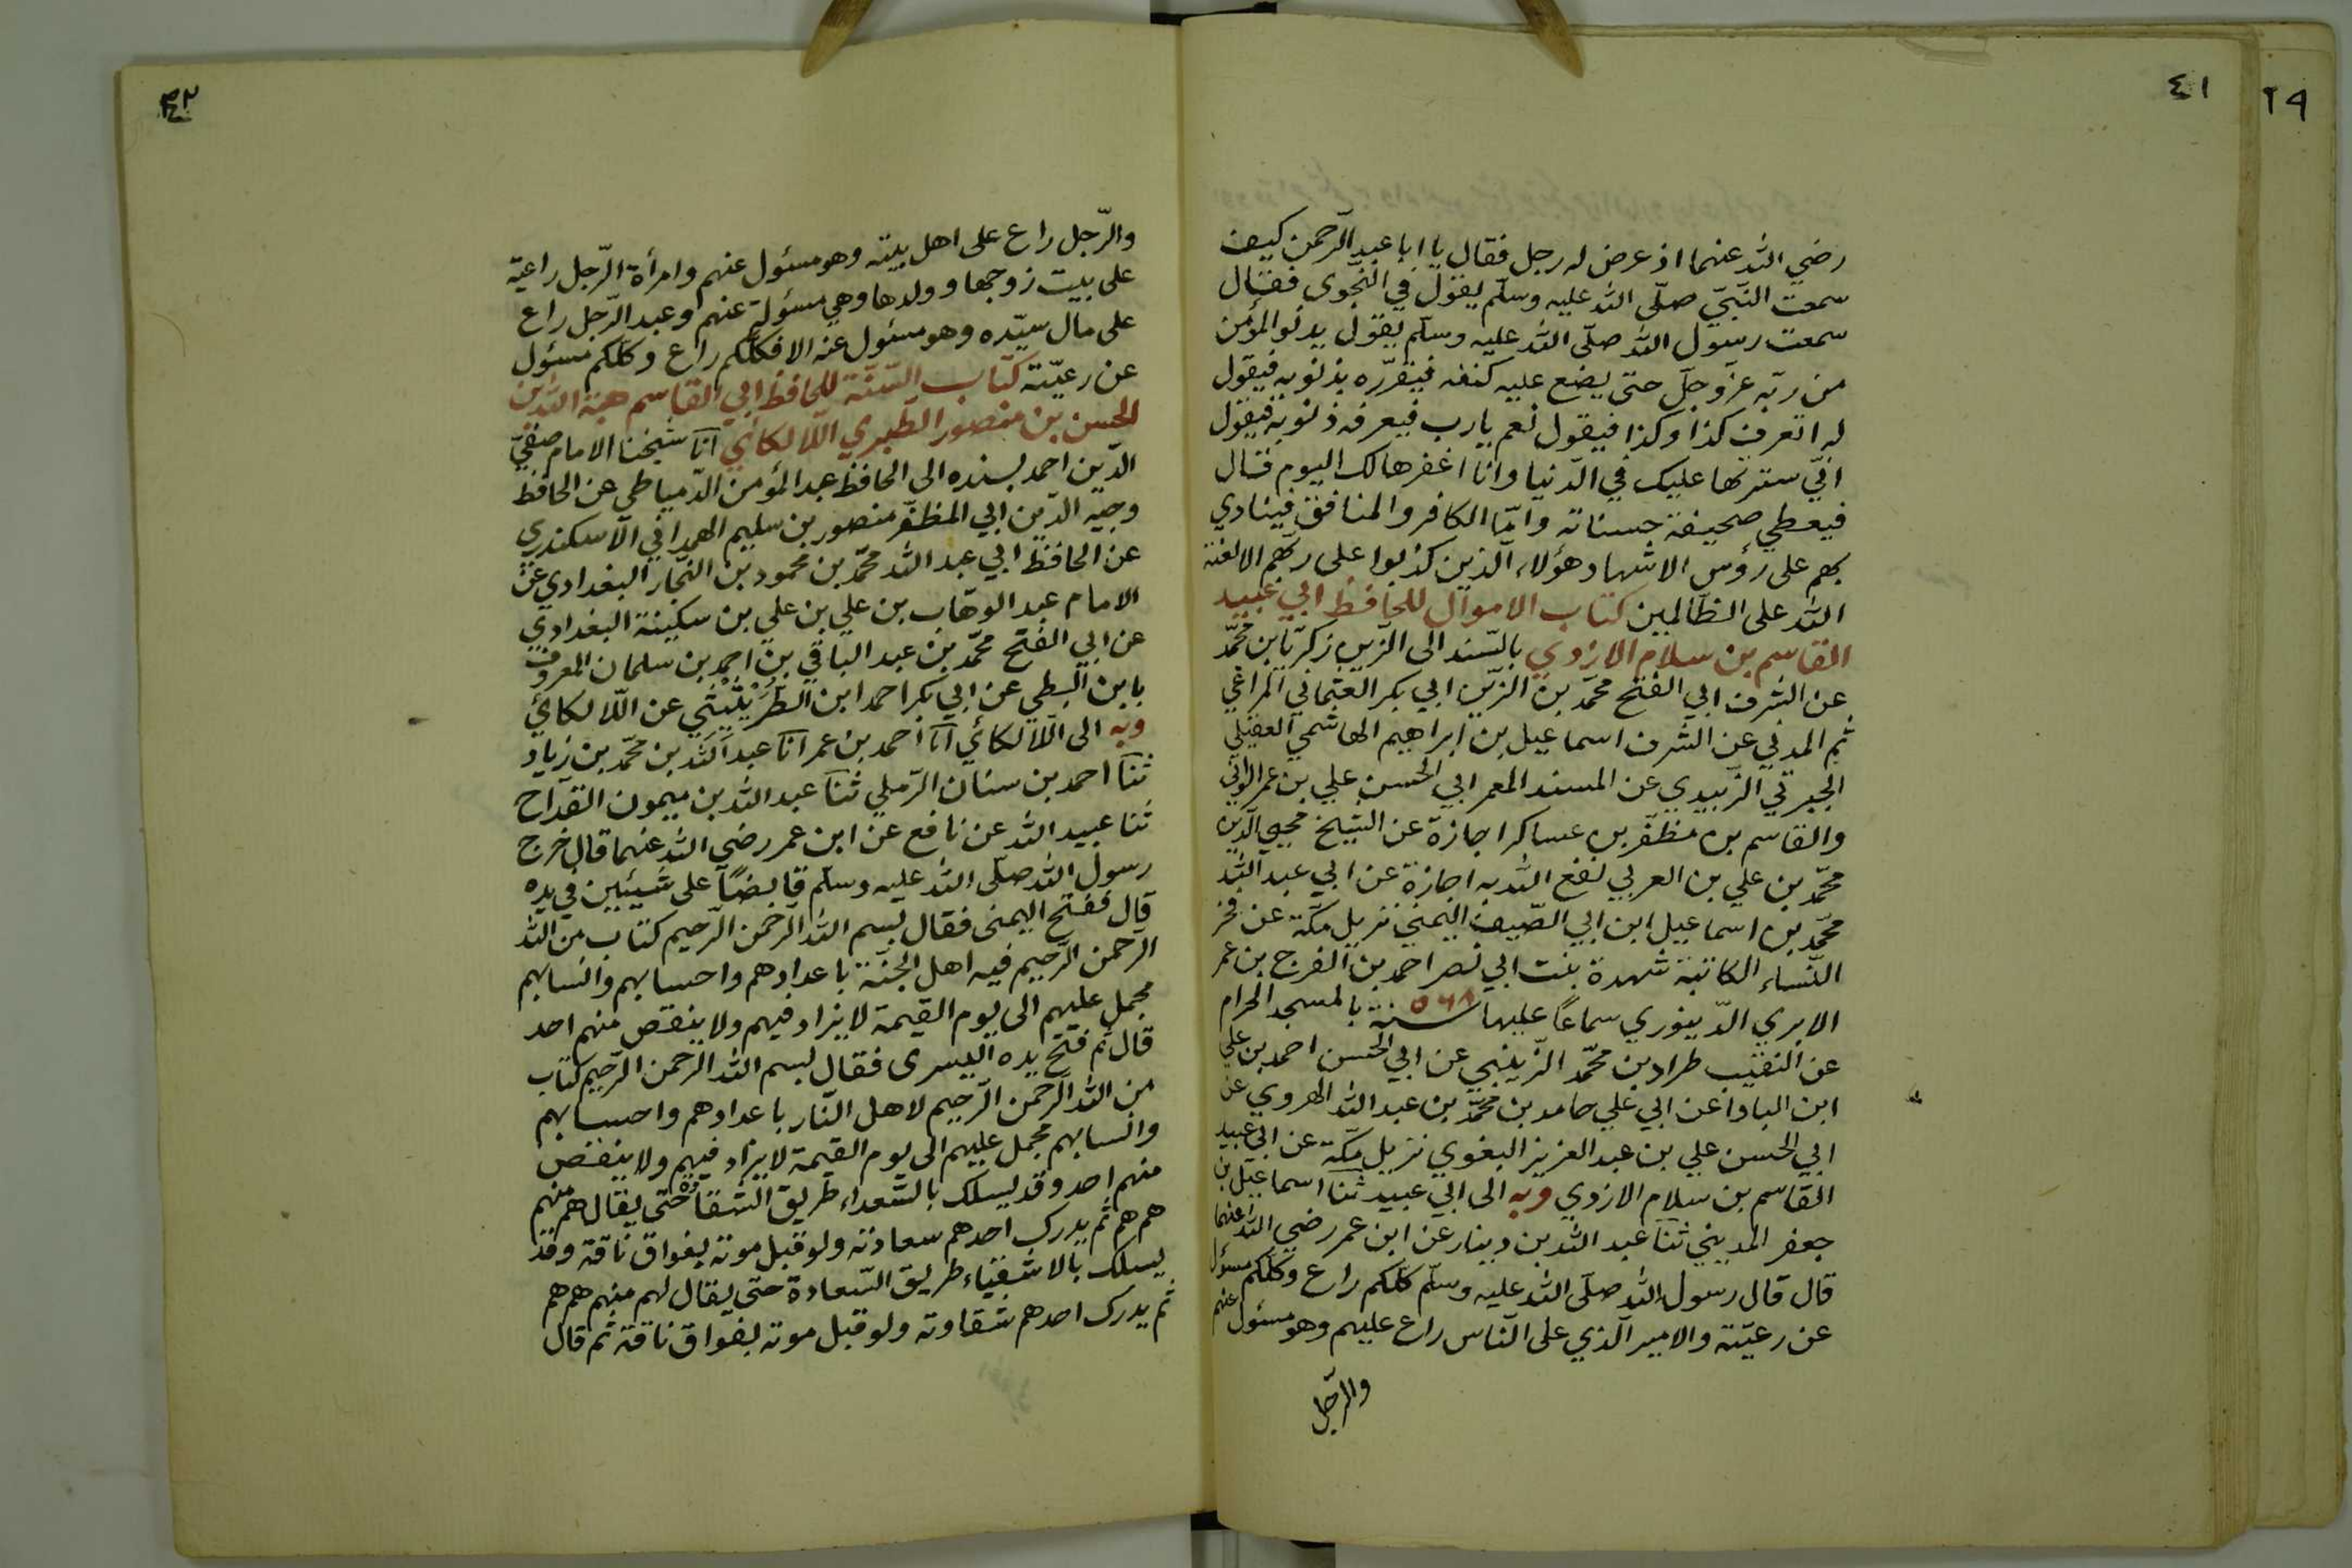 ٢٩
٤١
رضي الله عنهما اذ عرض له رجل فقال يا ابا عبد الرّحمن كيف
سمعت النّبيّ صلّى الله عليه وسلّم يقول في النّجوى فقال
سمعت رسول الله صلّى الله عليه وسلّم يقول يدنو المؤمن
من ربّه عزّ وجلّ حتى يضع عليه كنفه فيقرّره بذنوبه فيقول
له اتعرف كذا وكذا فيقول نعم يارب فيعرفه ذنوبه فيقول
انّي سترتها عليك في الدّنيا وانا اغفرها لك اليوم قال
فيعطي صحيفة حسناته وامّا الكافر والمنافق فينادي
بهم على رؤس الاشهاد هؤلاء الّذين كذبوا على ربّهم الا لعنة
الله على الظّالمين كتاب الاموال للحافظ ابي عبيد
القاسم بن سلام الازدي بالسّند الى الزّين زكريّا بن محمّد
عن الشّرف ابي الفتح محمّد بن الزّين ابي بكر العثماني المراغي
ثم المدني عن الشّرف اسماعيل بن ابراهيم الهاشمي العقيلي
الجبرتي الزّبيدي عن المسند المعمر ابي الحسن علي بن عمر الواني
والقاسم بن مظفّر بن عساكر اجازة عن الشّيخ محيي الدّين
محمّد بن علي بن العربي نفع الله به اجازة عن ابي عبد الله
محمّد بن اسماعيل ابن ابي الصّيف اليمني نزيل مكّة عن فخر
النّساء الكاتبة شهدة بنت ابي نصر احمد بن الفرج بن عمر
الابري الدّينوري سماعًا عليها سنة ٥٦٨ بالمسجد الحرام
عن النقيب طراد بن محمّد الزّينبي عن ابي الحسن احمد بن علي
ابن البادا عن ابي علي حامد بن محمّد بن عبد الله الهروي عن
ابي الحسن علي بن عبد العزيز البغوي نزيل مكّة عن ابي عبيد
القاسم بن سلام الازدي وبه الى ابي عبيد ثنا اسماعيل بن
جعفر المديني ثنا عبد الله بن دينار عن ابن عمر رضي الله عنهما
قال قال رسول الله صلّى الله عليه وسلّم كلّكم راع وكلّكم مسئول
عن رعيّته والامير الّذي على النّاس راع عليهم وهو مسئول عنهم
والرّجل
٤٢
والرّجل راع على اهل بيته وهو مسئول عنهم وامرأة الرّجل راعية
على بيت زوجها وولدها وهي مسئولة عنهم وعبد الرّجل راع
على مال سيّده وهو مسئول عنه الا فكلّكم راع وكلّكم مسئول
عن رعيّته كتاب السّنّة للحافظ ابي القاسم هبة الله بن
الحسن بن منصور الطّبري اللّالكائي انا شيخنا الامام صفيّ
الدّين احمد بسنده الى الحافظ عبد المؤمن الدّمياطي عن الحافظ
وجيه الدّين ابي المظفّر منصور بن سليم الهمداني الاسكندري
عن الحافظ ابي عبد الله محمّد بن محمود بن النّجّار البغدادي عن
الامام عبد الوهّاب بن علي بن علي بن سكينة البغدادي
عن ابي الفتح محمّد بن عبد الباقي بن احمد بن سلمان المعروف
بابن البطي عن ابي بكر احمد ابن الطّريثيثي عن اللّالكائي
وبه الى اللّالكائي انا احمد بن عمر انا عبد الله بن محمّد بن زياد
ثنا احمد بن سنان الرّملي ثنا عبد الله بن ميمون القدّاح
ثنا عبيد الله عن نافع عن ابن عمر رضي الله عنهما قال خرج
رسول الله صلّى الله عليه وسلّم قابضًا على شيئين في يده
قال ففتح اليمنى فقال بسم الله الرّحمن الرّحيم كتاب من الله
الرّحمن الرّحيم فيه اهل الجنّة باعدادهم واحسابهم وانسابهم
مجمل عليهم الى يوم القيمة لا يزاد فيهم ولا ينقص منهم احد
قال ثم فتح يده اليسرى فقال بسم الله الرّحمن الرّحيم كتاب
من الله الرّحمن الرّحيم لاهل النّار باعدادهم واحسابهم
وانسابهم مجمل عليهم الى يوم القيمة لا يزاد فيهم ولا ينقص
منهم احد وقد يسلك بالسّعداء طريق الشّقاء حتى يقال هم منهم
هم هم ثم يدرك احدهم سعادته ولو قبل موته بفواق ناقة وقد
يسلك بالاشقياء طريق السّعادة حتى يقال لهم منهم هم هم
ثم يدرك احدهم شقاوته ولو قبل موته بفواق ناقة ثم قال